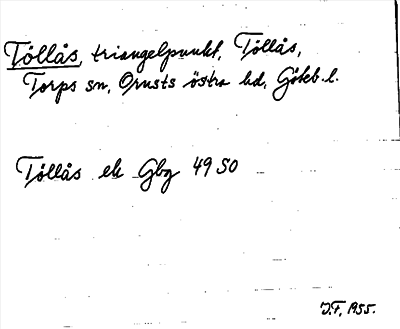 Töllås, triangelpunkt, Töllås,
Torps sn, Orusts östra hd, Göteb. l.
Töllås ek Gbg 49 SO
J.F. 1955.